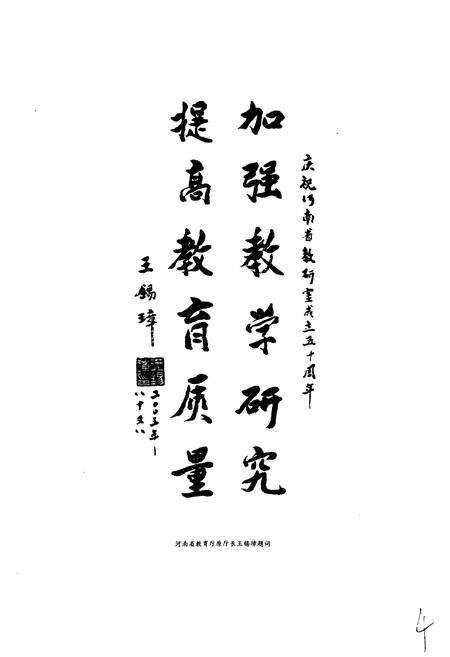 庆祝河南省教研室成立五十周年
加强教学研究
提高教育质量
王锡璋
二〇〇三年
河南省教育厅原厅长王锡璋题词